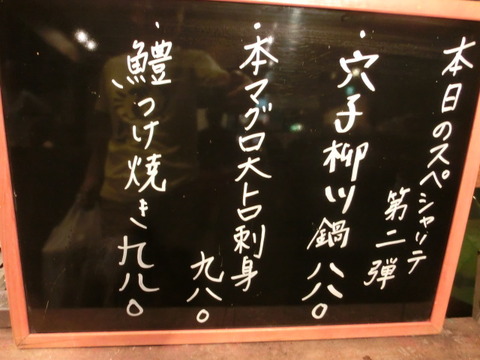 本日のスペシャリテ
第二弾
・穴子柳川鍋 八八〇
・本マグロ大トロ刺身
九八〇
・鱧つけ焼き 九八〇